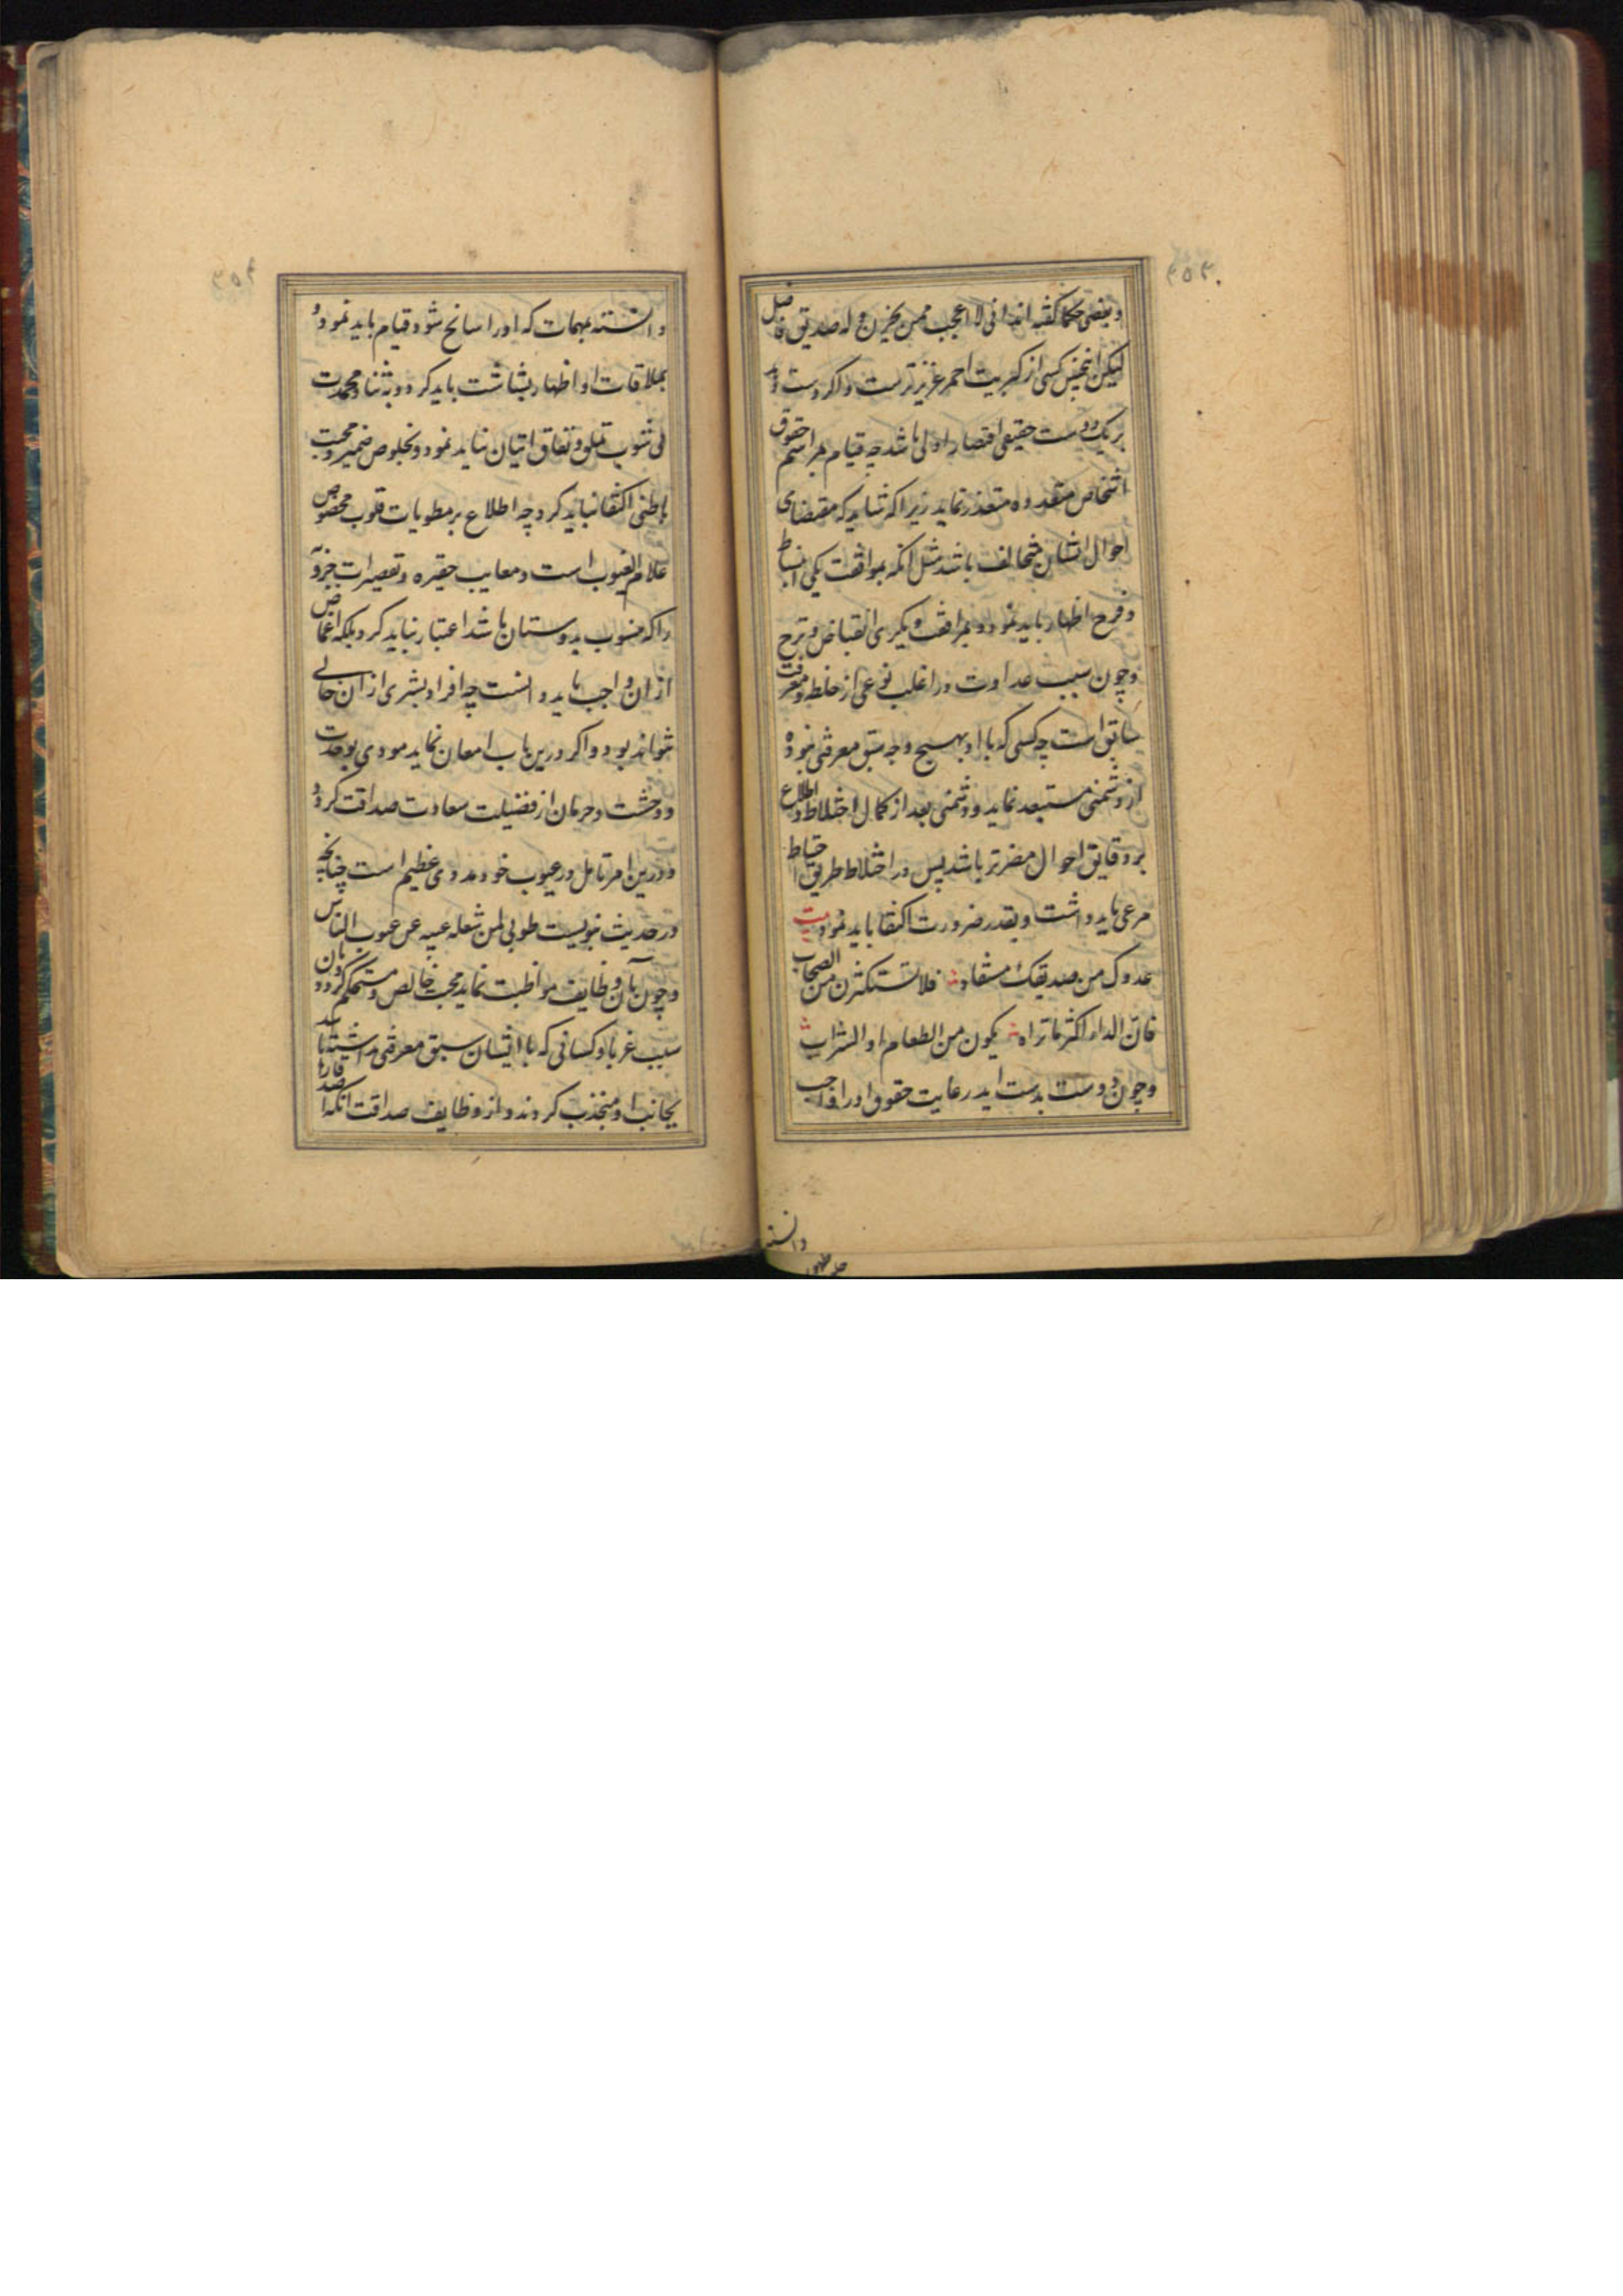 ۳۵۳
و بعضی حکما گفته اند انی لا اعجب ممن یحزن و له صدیق فاضل
لیکن اینچنین کسی از کبریت احمر عزیزتر است و اگر دست دهد
بر یک دوست حقیقی اقتصار اولی باشد چه قیام بمراسم حقوق
اشخاص متعدده متعذر نماید زیرا که شاید که مقتضای
احوال ایشان متخالف باشد مثل آنکه بموافقت یکی انبساط
و فرح اظهار باید نمود و بمرافقت دیگری انقباض و ترح
و چون سبب عداوت در اغلب نوعی از خلطه و معرفت
سابق است چه کسی که با او بهیچ وجه سبق معرفتی نبوده
از دشمنی مستبعد نماید و دشمنی بعد از کمال اختلاط و اطلاع
بر دقایق احوال مضرتر باشد پس در اختلاط طریق احتیاط
مرعی باید داشت و بقدر ضرورت اکتفا باید نمود بیت
عدوک من صدیقک مستفاد فلا تستکثرن من الصحاب
فان الداء اکثر ما تراه یکون من الطعام او الشراب
و چون دوست بدست اید رعایت حقوق او را واجب
دانسته
۳۵۴
دانسته بمهمات که او را سانح شود قیام باید نمود و
بملاقات او اظهار بشاشت باید کرد و بثنا و محمدت
بی شوب تملق و نفاق اتیان باید نمود و بخلوص ضمیر و محبت
باطنی اکتفا نباید کرد چه اطلاع بر مطویات قلوب مخصوص
علام الغیوب است و معایب حقیره و تقصیرات جزو
را که منسوب بدوستان باشد اعتبار نباید کرد بلکه اغماض
از ان واجب باید دانست چه افراد بشری از ان خالی
نتواند بود و اگر درین باب امعان نماید مودی بوحدت
و وحشت و حرمان از فضیلت سعادت صداقت گردد
و درین امر تامل در عیوب خود ممدوی عظیم است چنانچه
در حدیث نبویست طوبی لمن شغله عیبه عن عیوب الناس
و چون بآن وظایف مواظبت نماید محبت خالص و مستحکم گردد و بان
سبب غربا و کسانی که با ایشان سبق معرفتی نداشته باشد
بجانب او منجذب کردند و از وظایف صداقت آنکه اصدقا را